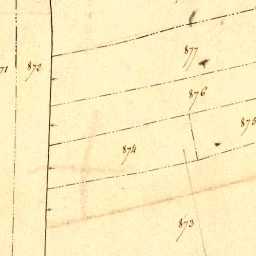 877
71
872
876
875
874
873